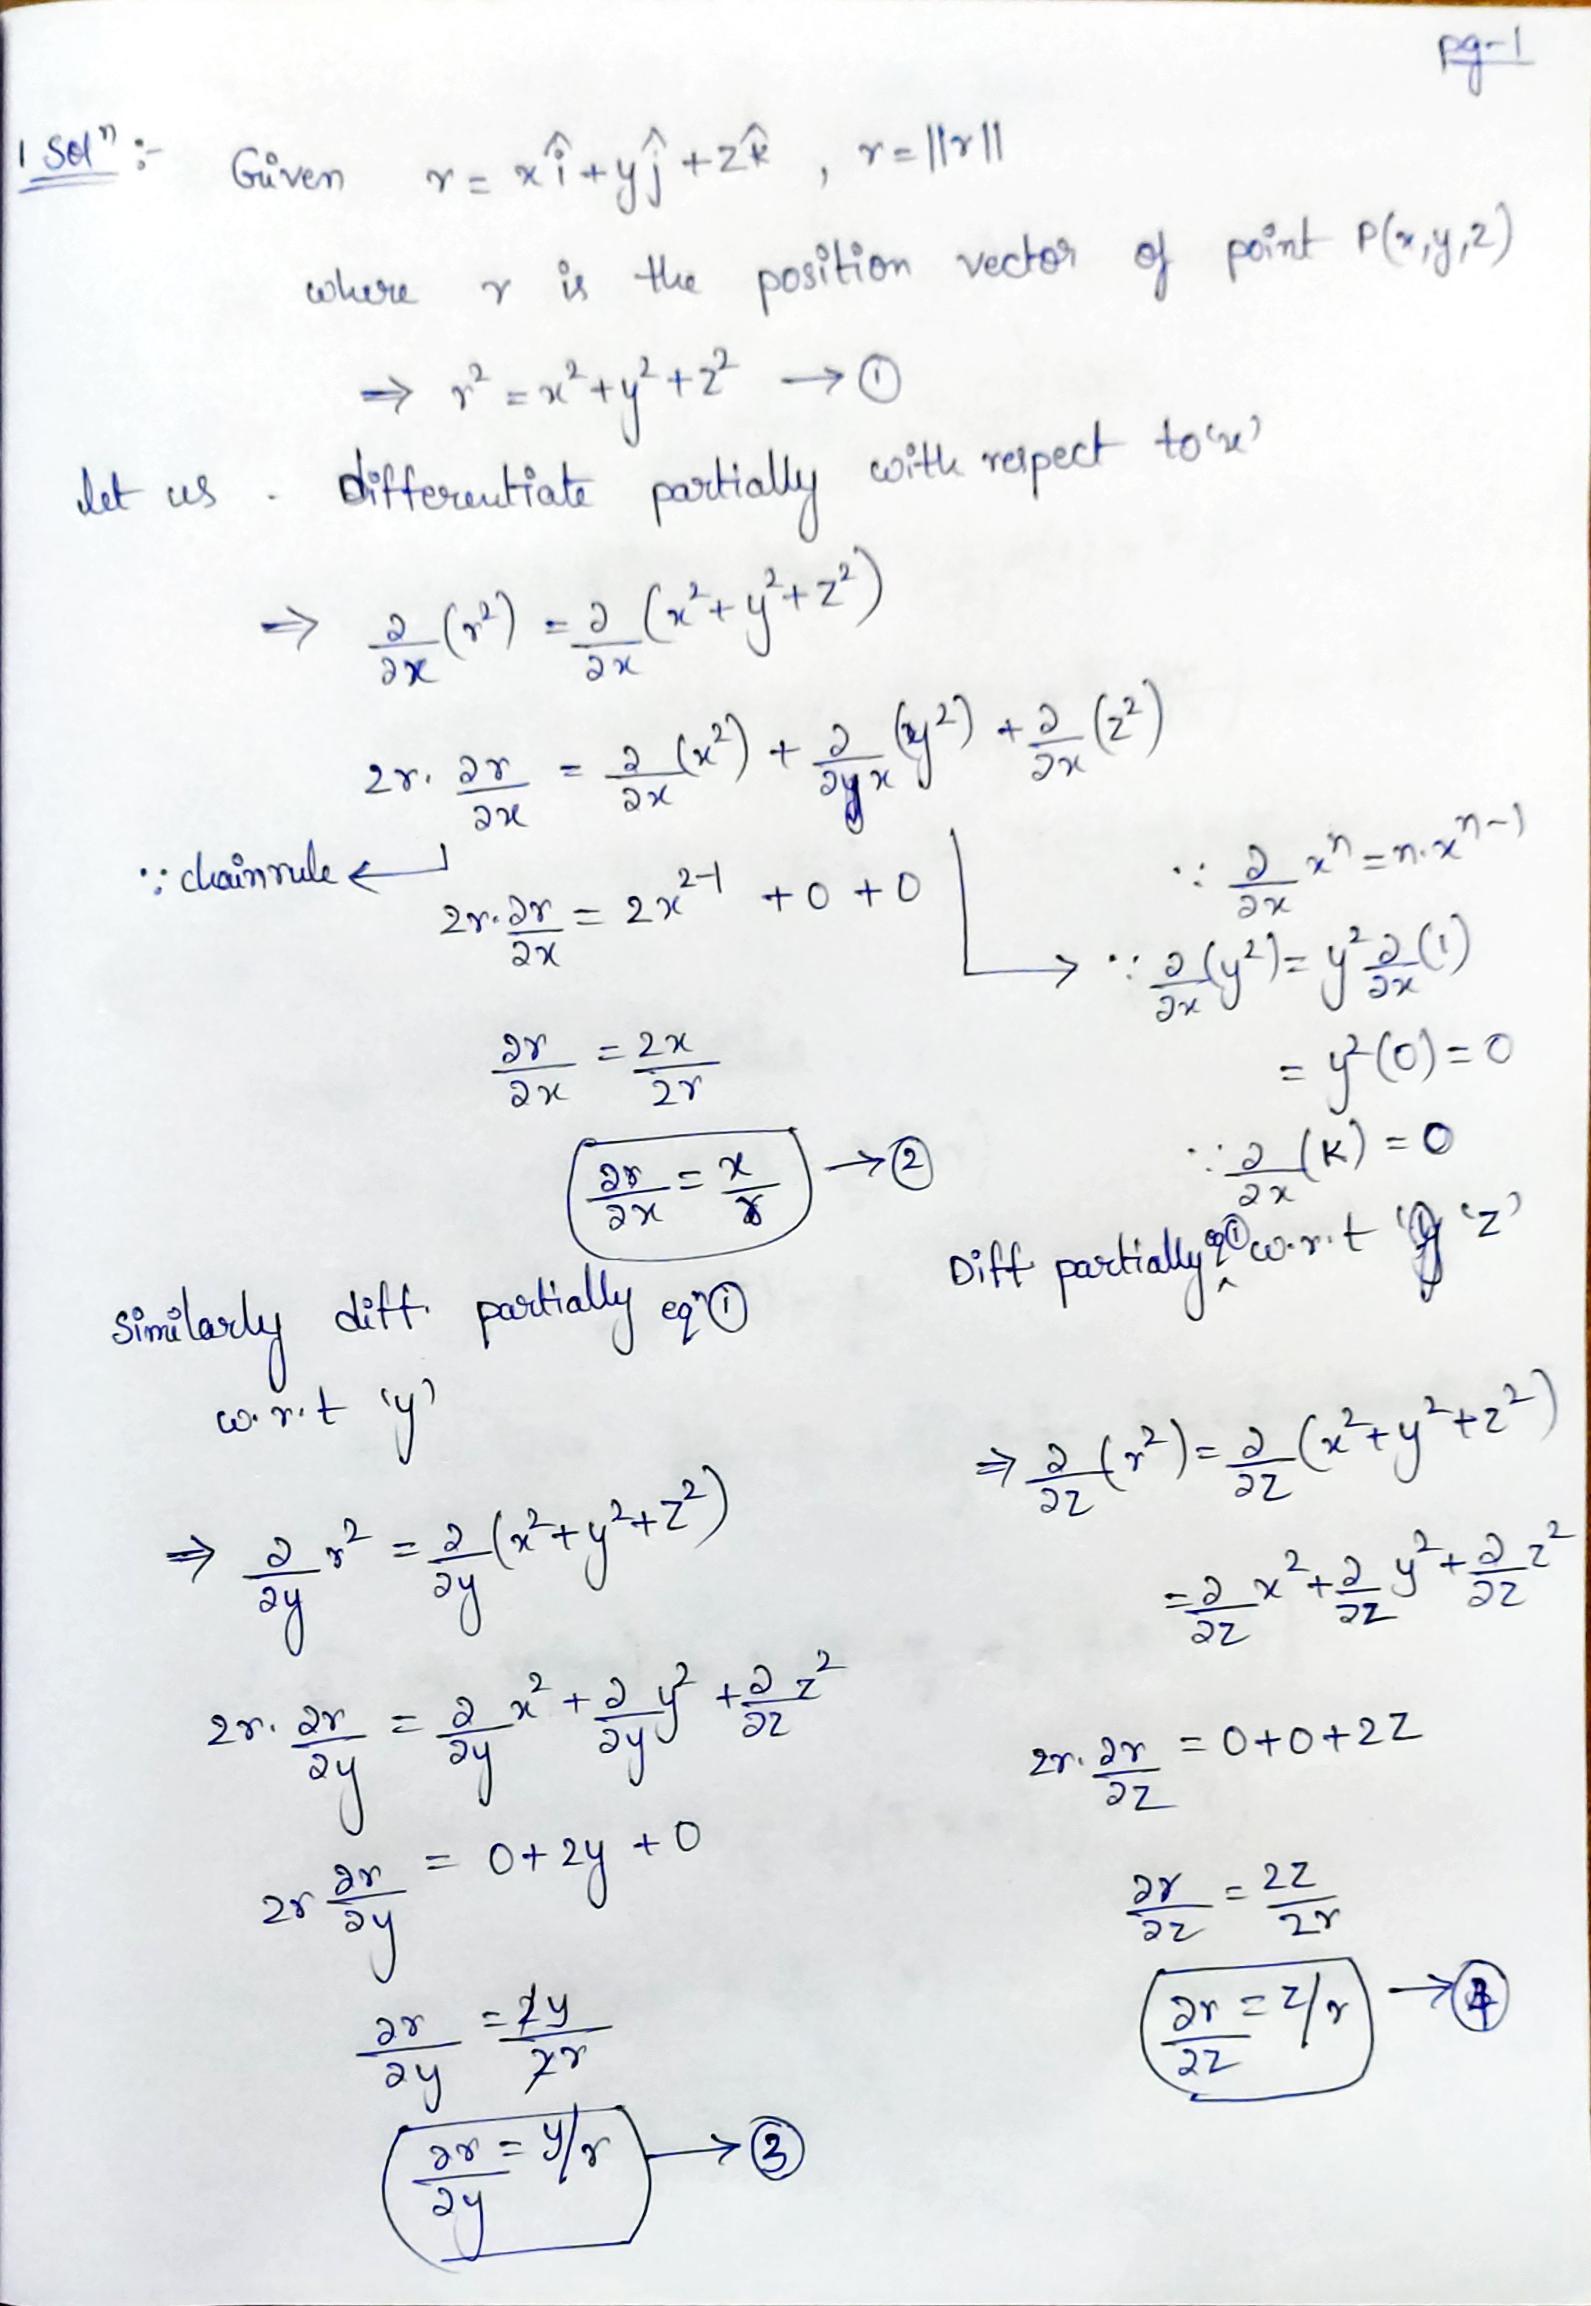 pg-1
1 Solⁿ :- Given r = xî + yĵ + zk̂ , r = ||r||
where r is the position vector of point P(x,y,z)
⇒ r² = x² + y² + z² → ①
let us . differentiate partially with respect to 'x'
⇒ ∂/∂x (r²) = ∂/∂x (x² + y² + z²)
2r. ∂r/∂x = ∂/∂x (x²) + ∂/∂x (y²) + ∂/∂x (z²)
∵ chainrule ←
2r. ∂r/∂x = 2x²⁻¹ + 0 + 0
∵ ∂/∂x xⁿ = n.xⁿ⁻¹
→ ∵ ∂/∂x (y²) = y² ∂/∂x (1)
= y²(0) = 0
∵ ∂/∂x (K) = 0
∂r/∂x = 2x/2r
∂r/∂x = x/r → ②
Similarly diff. partially eqⁿ ①
w.r.t 'y'
⇒ ∂/∂y r² = ∂/∂y (x² + y² + z²)
2r. ∂r/∂y = ∂/∂y x² + ∂/∂y y² + ∂/∂z z²
2r ∂r/∂y = 0 + 2y + 0
∂r/∂y = 2y/2r
∂r/∂y = y/r → ③
Diff partially eq ① w.r.t 'z'
⇒ ∂/∂z (r²) = ∂/∂z (x² + y² + z²)
= ∂/∂z x² + ∂/∂z y² + ∂/∂z z²
2r. ∂r/∂z = 0 + 0 + 2z
∂r/∂z = 2z/2r
∂r/∂z = z/r → ④